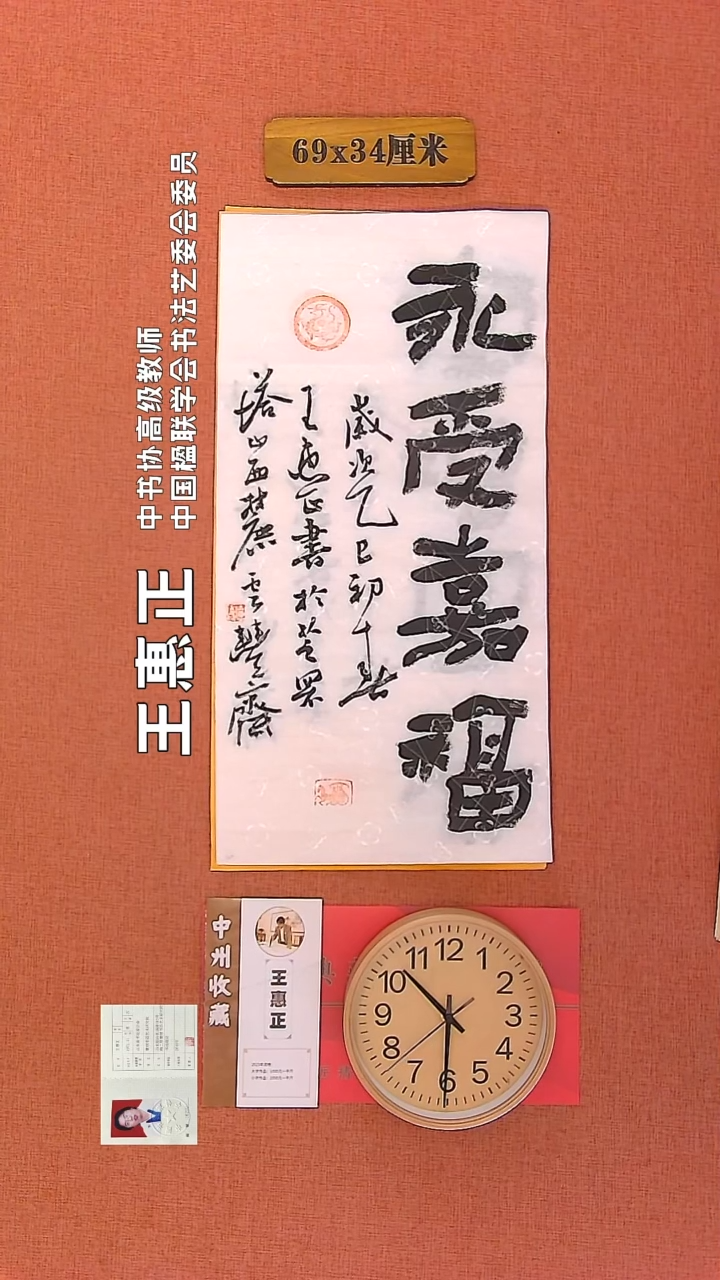 69x34厘米
永受嘉福
歲次乙巳初春
王惠正書於芝罘
塔山西麓雲鶴齋
王惠正
中书协高级教师
中国楹联学会书法艺委会委员
中州收藏
王惠正
12
1
2
3
4
5
6
7
8
9
10
11